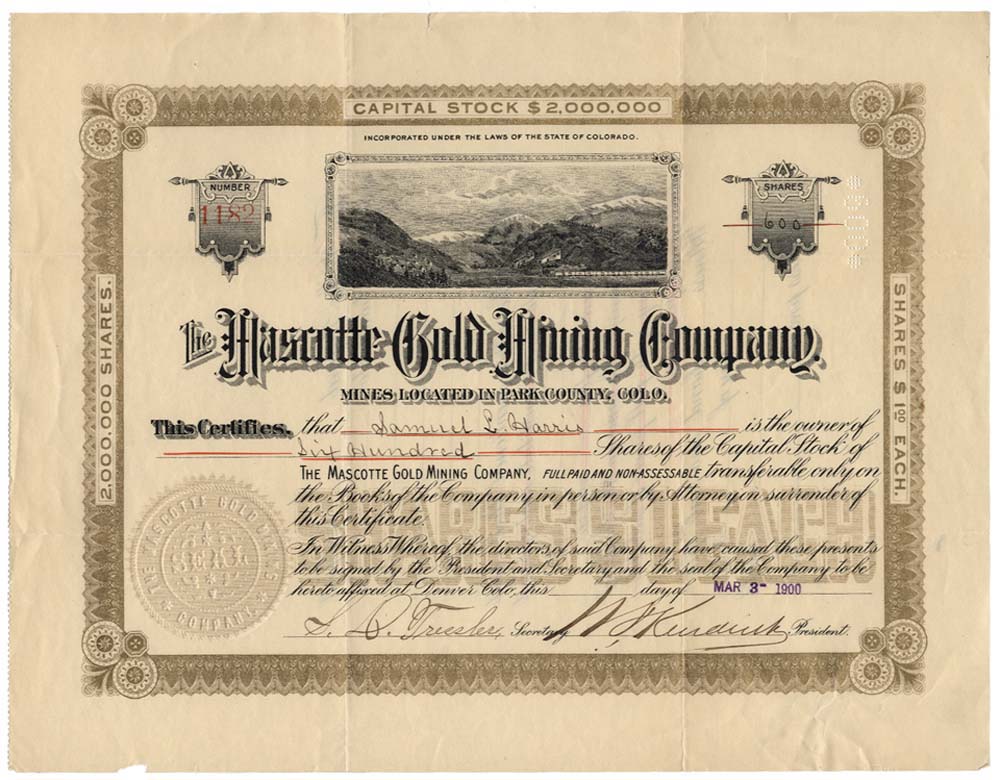 CAPITAL STOCK $2,000,000
INCORPORATED UNDER THE LAWS OF THE STATE OF COLORADO.
NUMBER
1182
SHARES
600
*600*
2,000,000 SHARES.
SHARES $1.00 EACH.
The Mascotte Gold Mining Company.
MINES LOCATED IN PARK COUNTY, COLO.
This Certifies, that Samuel L. Harris is the owner of
Six Hundred Shares of the Capital Stock of
THE MASCOTTE GOLD MINING COMPANY, FULL PAID AND NON-ASSESSABLE transferable only on
the Books of the Company in person or by Attorney on surrender of
this Certificate.
SHARES $1 EACH
In Witness Whereof, the directors of said Company have caused these presents
to be signed by the President and Secretary and the seal of the Company to be
hereto affixed at Denver Colo, this day of MAR 3- 1900
Tressler, Secretary Kendrick President.
THE MASCOTTE GOLD MINING COMPANY
SEAL